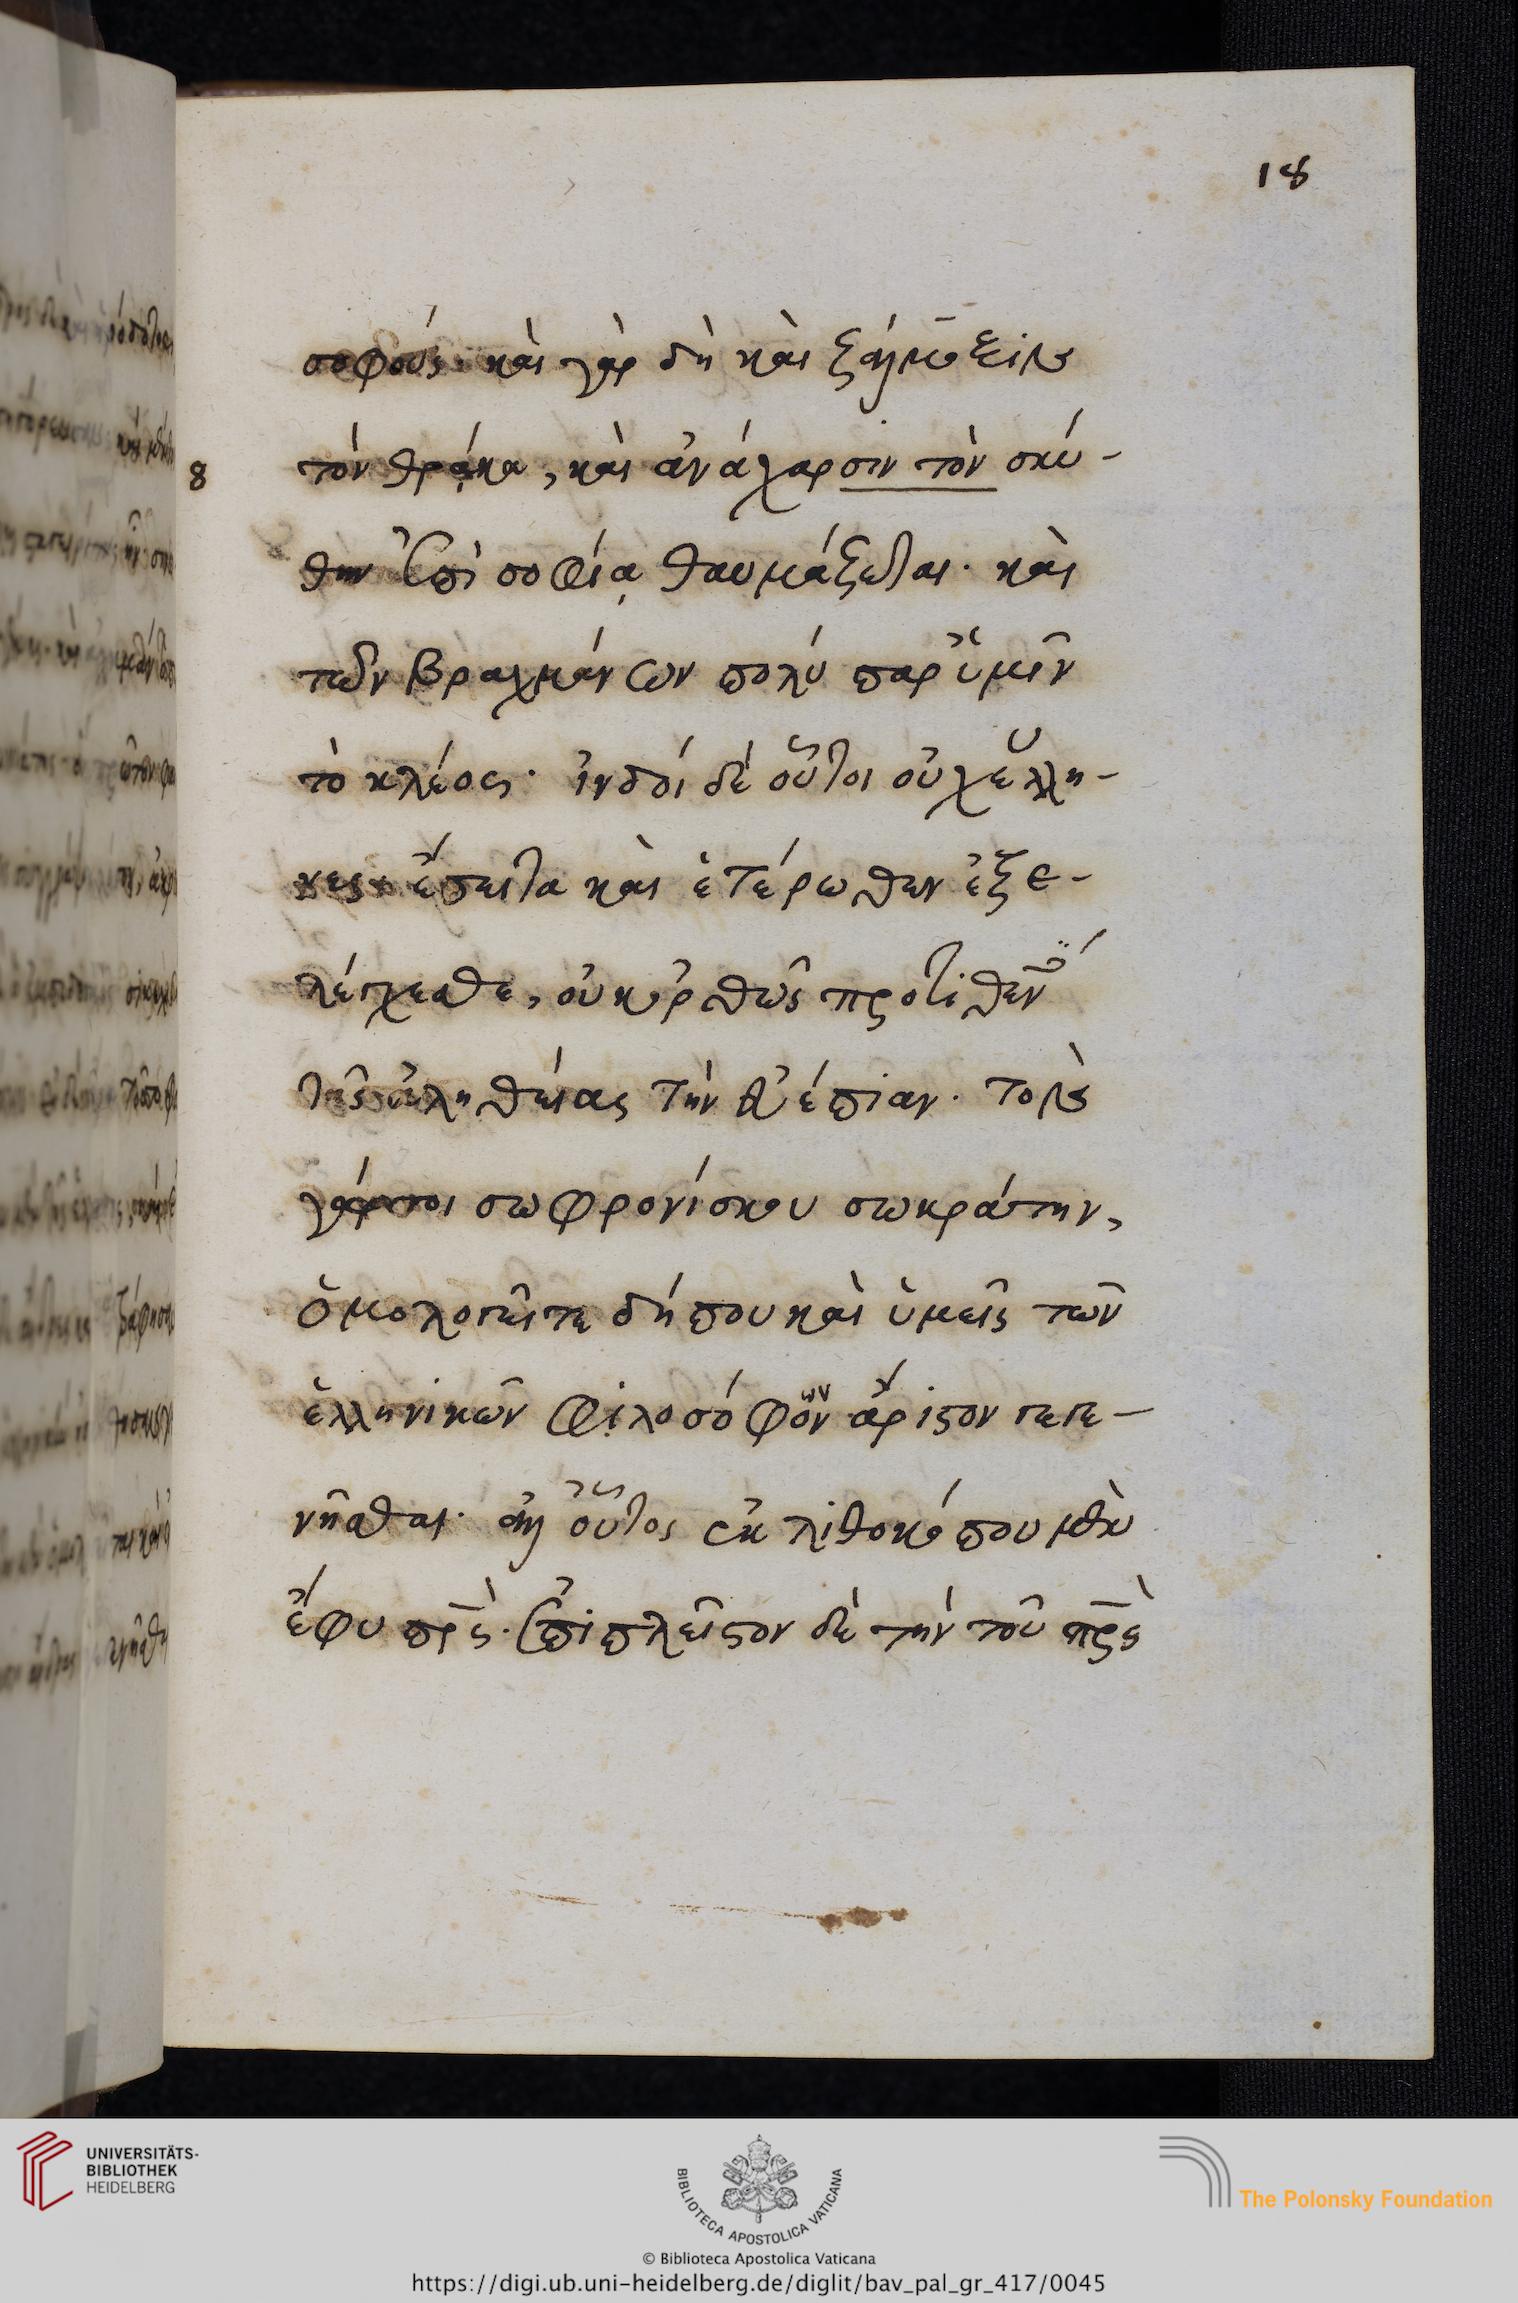 18
σοφούς. καὶ γὰρ δὴ καὶ ζάμοξιν
8 τὸν θρᾴκα, καὶ ἀνάχαρσιν τὸν σκύ-
θην ἐπὶ σοφίᾳ θαυμάζεται. καὶ
τῶν βραχμάνων πολύ παρ' ὑμῖν
τὸ κλέος. ἰνδοί δὲ οὗτοι οὐχ ἕλλη-
νες. ἔπειτα καὶ ἑτέρωθεν ἐξε-
λέγχεσθε, οὐκ ὀρθῶς προτιθέν
τῆς ἀληθείας τὴν εὐέπιαν. τὸν
γάρ τοι σωφρονίσκου σωκράτην,
ὁμολογεῖτε δήπου καὶ ὑμεῖς τῶν
ἑλληνικῶν φιλοσόφων ἄριστον γεγε-
νῆσθαι. ἀλλ' οὗτος ἐκ λιθοκόπου μὲν
ἔφυ πρ̅ς. ἐπὶ πλεῖστον δὲ τὴν τοῦ πρ̅ς
UNIVERSITÄTS-
BIBLIOTHEK
HEIDELBERG
BIBLIOTECA APOSTOLICA VATICANA
The Polonsky Foundation
© Biblioteca Apostolica Vaticana
https://digi.ub.uni-heidelberg.de/diglit/bav_pal_gr_417/0045